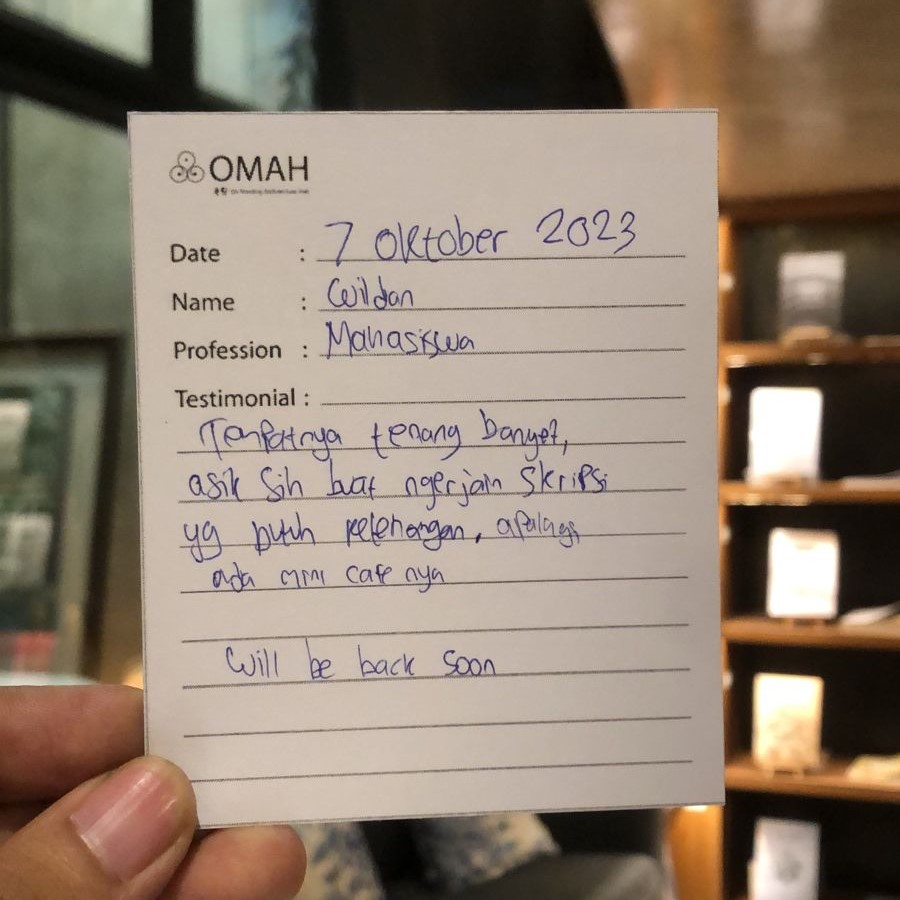 OMAH
Date : 7 Oktober 2023
Name : Wildan
Profession : Mahasiswa
Testimonial :
Tempatnya tenang banget,
asik sih buat ngerjain Skripsi
yg butuh ketenangan, apalagi
ada mini cafe nya
Will be back soon